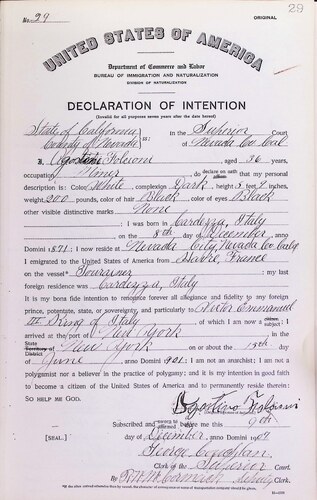 No. 29
ORIGINAL
29
UNITED STATES OF AMERICA
Department of Commerce and Labor
BUREAU OF IMMIGRATION AND NATURALIZATION
DIVISION OF NATURALIZATION
DECLARATION OF INTENTION
(Invalid for all purposes seven years after the date hereof)
State of California
County of Nevada ss:
In the Superior Court
of Nevada Co. Cal
I, Agostino, aged 36 years,
occupation Miner, do declare on oath that my personal
description is: Color White, complexion Dark, height 5 feet 9 inches,
weight 200 pounds, color of hair Black, color of eyes Black
other visible distinctive marks None
I was born in Cardezza, Italy
on the 8th day of December, anno
Domini 1871; I now reside at Nevada City, Nevada Co. Calif
I emigrated to the United States of America from Havre, France
on the vessel*; my last
foreign residence was Cardezza, Italy
It is my bona fide intention to renounce forever all allegiance and fidelity to any foreign
prince, potentate, state, or sovereignty, and particularly to Victor Emmanuel
III King of Italy, of which I am now a subject;
I arrived at the port of New York, in the
State of New York on or about the day
of June, anno Domini 1901; I am not an anarchist; I am not a
polygamist nor a believer in the practice of polygamy; and it is my intention in good faith
to become a citizen of the United States of America and to permanently reside therein:
SO HELP ME GOD.
Agostino
Subscribed and sworn to before me this 9th
[SEAL.] day of December, anno Domini 1907
George
Clerk of the Superior Court.
By R. W. McCormick, Clerk.